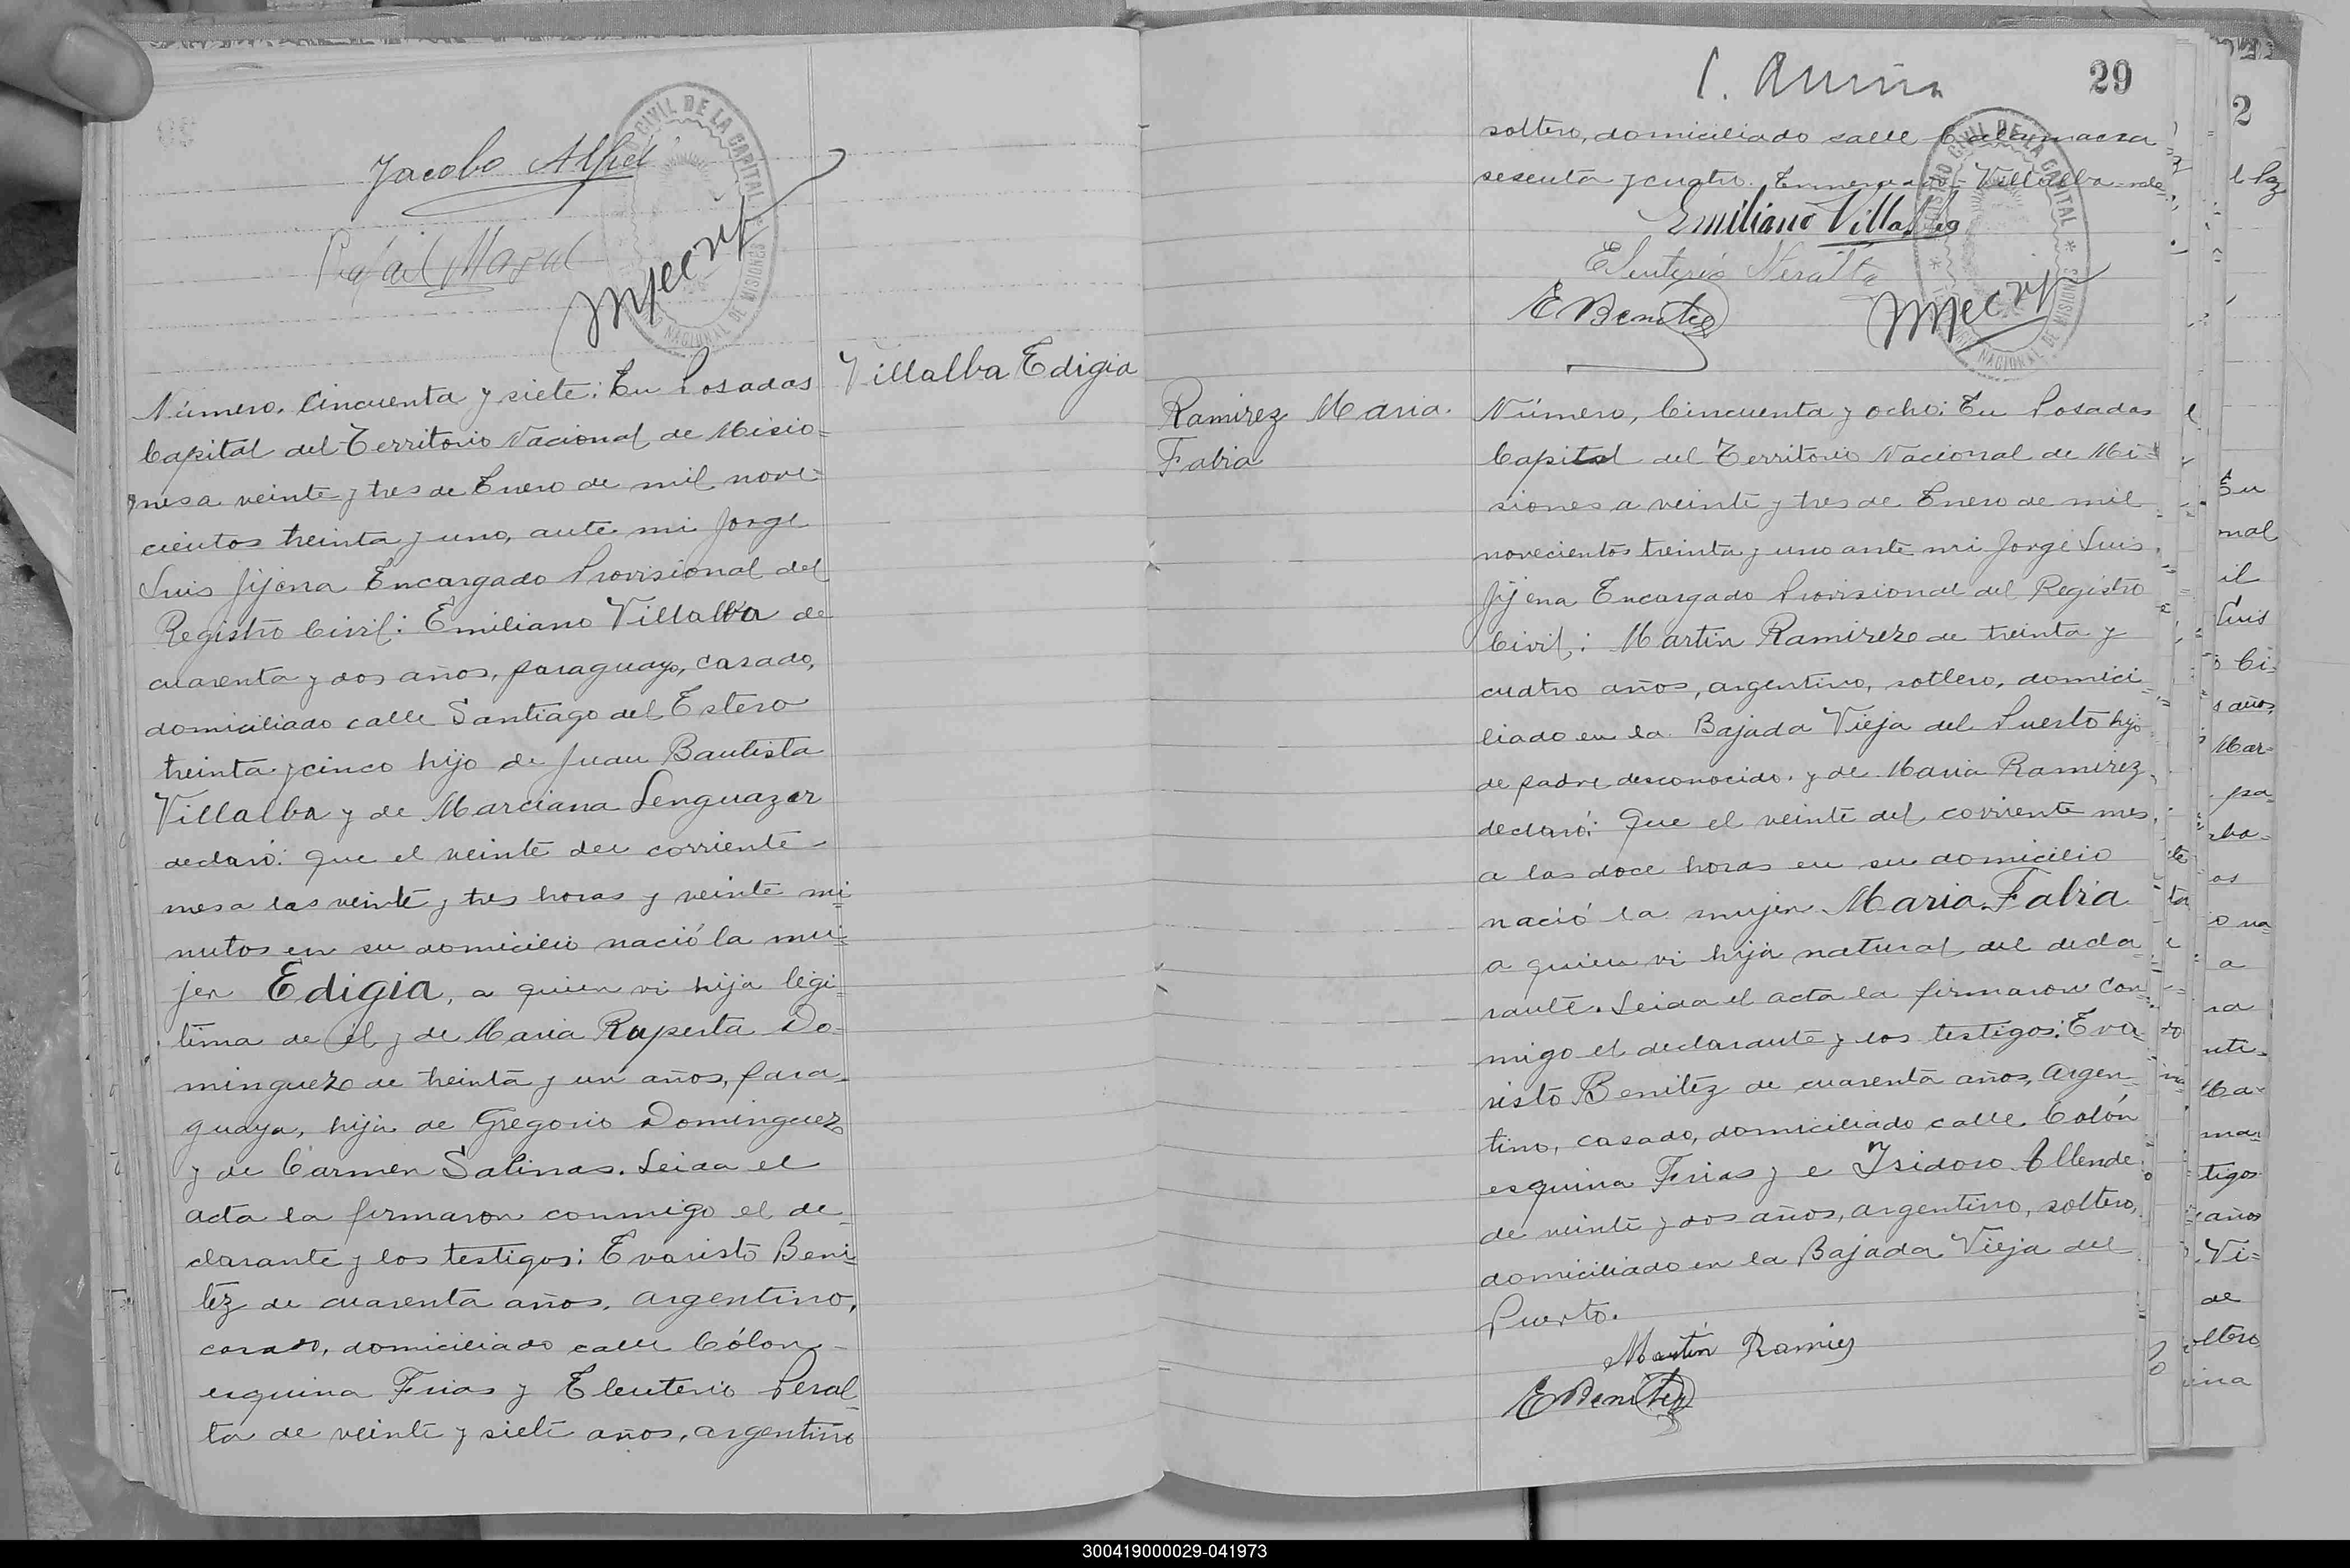 Jacobo
Rafael
REGISTRO CIVIL DE LA CAPITAL
NACIONAL DE MISIONES
Villalba Edigia
Número, Cincuenta y siete: En Posadas
Capital del Territorio Nacional de Misio=
nes a veinte y tres de Enero de mil nove-
cientos treinta y uno, ante mi Jorge
Luis Jijena Encargado Provisional del
Registro Civil: Emiliano Villalba de
cuarenta y dos años, paraguayo, casado,
domiciliado calle Santiago del Estero
treinta y cinco hijo de Juan Bautista
Villalba y de Marciana Lenguazar
declaró: que el veinte del corriente
mes a las veinte y tres horas y veinte mi=
nutos en su domicilio nació la mu=
jer Edigia, a quien vi hija legi=
tima de el y de Maria Ruperta Do-
minguez de treinta y un años, para-
guaya, hija de Gregorio Dominguez
y de Carmen Salinas. Leida el
acta la firmaron conmigo el de-
clarante y los testigos: Evaristo Beni=
tez de cuarenta años, argentino,
casado, domiciliado calle Cólon
esquina Frias y Eleuterio Peral-
ta de veinte y siete años, argentino
29
soltero, domiciliado calle Catamarca
sesenta y cuatro. Enmendado = Villalba = vale=
Emiliano Villalba
Eleuterio Peralta
E Benitez
REGISTRO CIVIL DE LA CAPITAL
NACIONAL DE MISIONES
Ramirez Maria
Fabia
Número, Cincuenta y ocho: En Posadas
Capital del Territorio Nacional de Mi=
siones a veinte y tres de Enero de mil
novecientos treinta y uno ante mi Jorge Luis
Jijena Encargado Provisional del Registro
Civil: Martin Ramirez de treinta y
cuatro años, argentino, soltero, domici=
liado en la Bajada Vieja del Puerto hijo
de padre desconocido y de Maria Ramirez,
declaró: Que el veinte del corriente mes
a las doce horas en su domicilio
nació la mujer Maria Fabia
a quien vi hija natural del decla
rante. Leida el acta la firmaron con=
migo el declarante y los testigos: Eva=
risto Benitez de cuarenta años, argen=
tino, casado, domiciliado calle Colón
esquina Frias y e Isidoro Allende
de veinte y dos años, argentino, soltero,
domiciliado en la Bajada Vieja del
Puerto.
Martin Ramirez
E Benitez
2
l Paz
En
nal
il
Luis
o Ci-
s años,
Mar=
pa=
os
o na=
a
na
nti-
Ma-
ma=
tigos
años
Vi=
de
oltero
ina
300419000029-041973